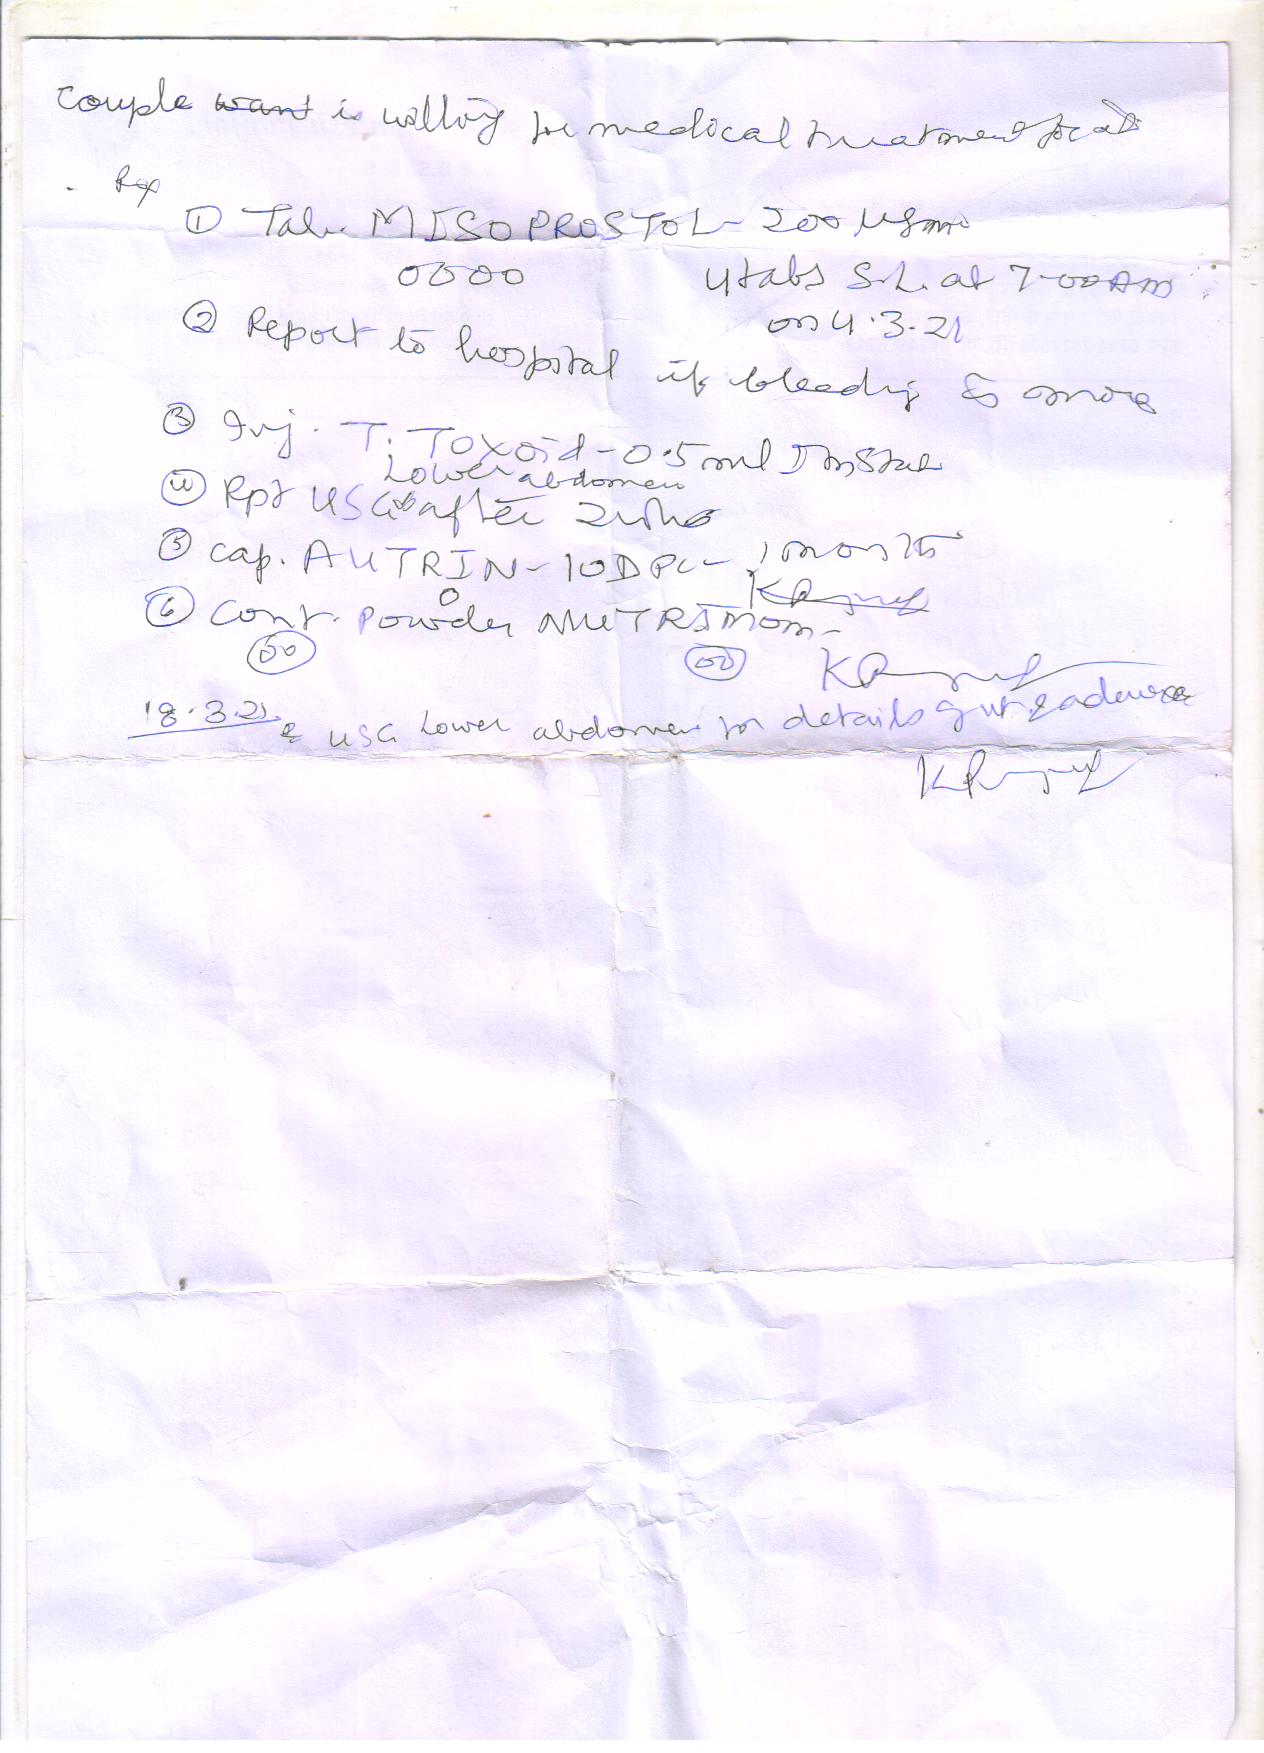 Couple want is willing for medical treatment for
Rx
① Tab. MISOPROSTOL - 200 µgm
0000 4 tabs S.L. at 7-00 AM
on 4.3.21
② Report to hospital if bleeding is more
③ Inj. T. Toxoid - 0.5 ml Im Stat
Lower abdomen
④ Rpt USG after 2 wks
⑤ cap. AUTRIN - 10D PC - 1 month
0
⑥ Cont. Powder NUTRIMOM -
18.3.21
USG Lower abdomen for details of ut. & adnexae